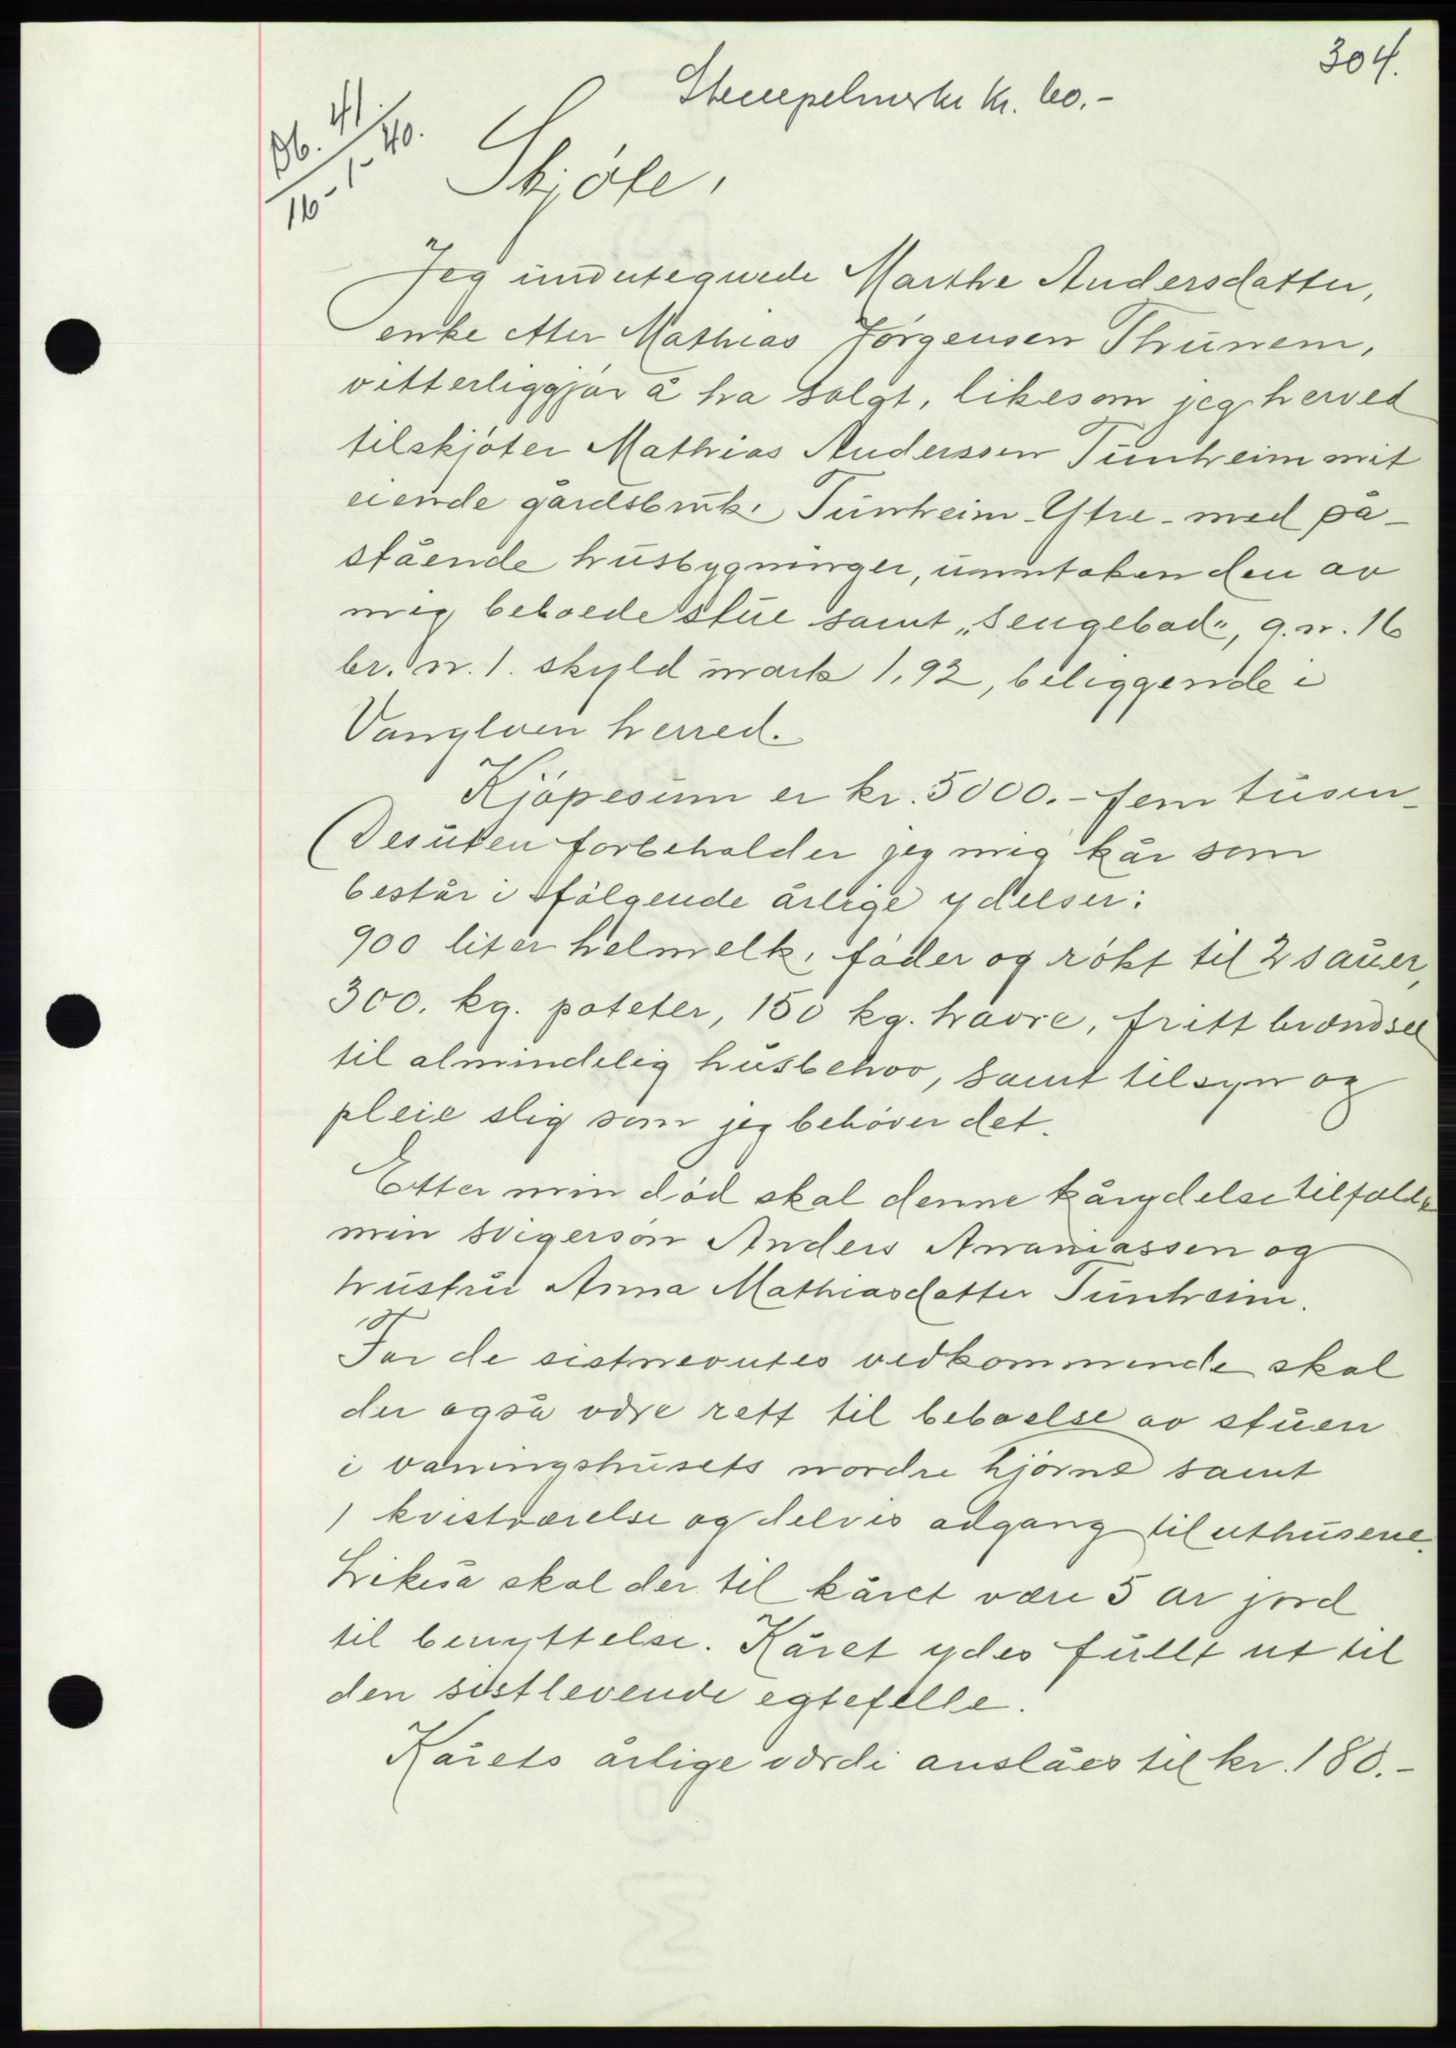 304.
Stempelmerke kr. 60.-
Db. 41.
16-1-40.
Skjøte,
Jeg undertegnede Marthe Andersdatter,
enke etter Mathias Jørgensen Thunem,
vitterliggjør å ha solgt, likesom jeg herved
tilskjøter Mathias Anderssen Tunheim mit
eiende gårdsbruk, Tunheim-Ytre- med på-
stående husbygninger, unntaken den av
mig beboede stue samt „Sengebod", g.n. 16
br. n. 1. skyld mark 1,92, beliggende i
Vanylven herred.
Kjøpesum er kr. 5000.- fem tusen-
Desuten forbeholder jeg mig kår som
består i følgende årlige ydelser:
900 liter helmelk, foder og røkt til 2 sauer,
300. kg. poteter, 150 kg. havre, fritt brændsel
til almindelig husbehov, samt tilsyn og
pleie slig som jeg behøver det.
Etter min død skal denne kårydelse tilfalde
min svigersøn Anders Ananiassen og
hustru Anna Mathiasdatter Tunheim.
For de sistnevntes vedkommende skal
der også være rett til beboelse av stuen
i vaningshusets nordre hjørne samt
1 kvistværelse og delvis adgang til uthusene.
Likeså skal der til kåret være 5 ar jord
til benyttelse. Kåret ydes fullt ut til
den sistlevende egtefelle.
Kårets årlige værdi anslåes til kr. 180.-